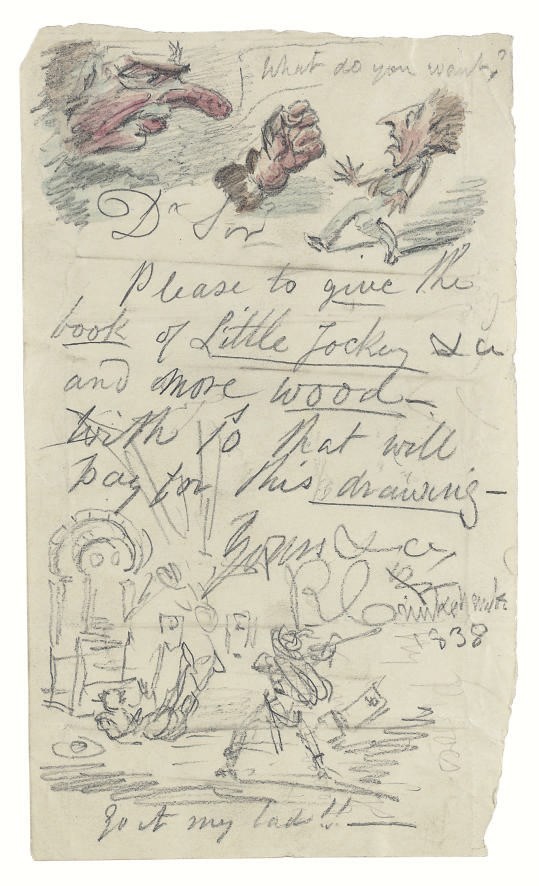 What do you want?
Dr Sir
Please to give the
book of Little Jockey &c
and more wood—
With /6 that will
pay for this drawing—
Yours &c
838
Go it my lads!!—